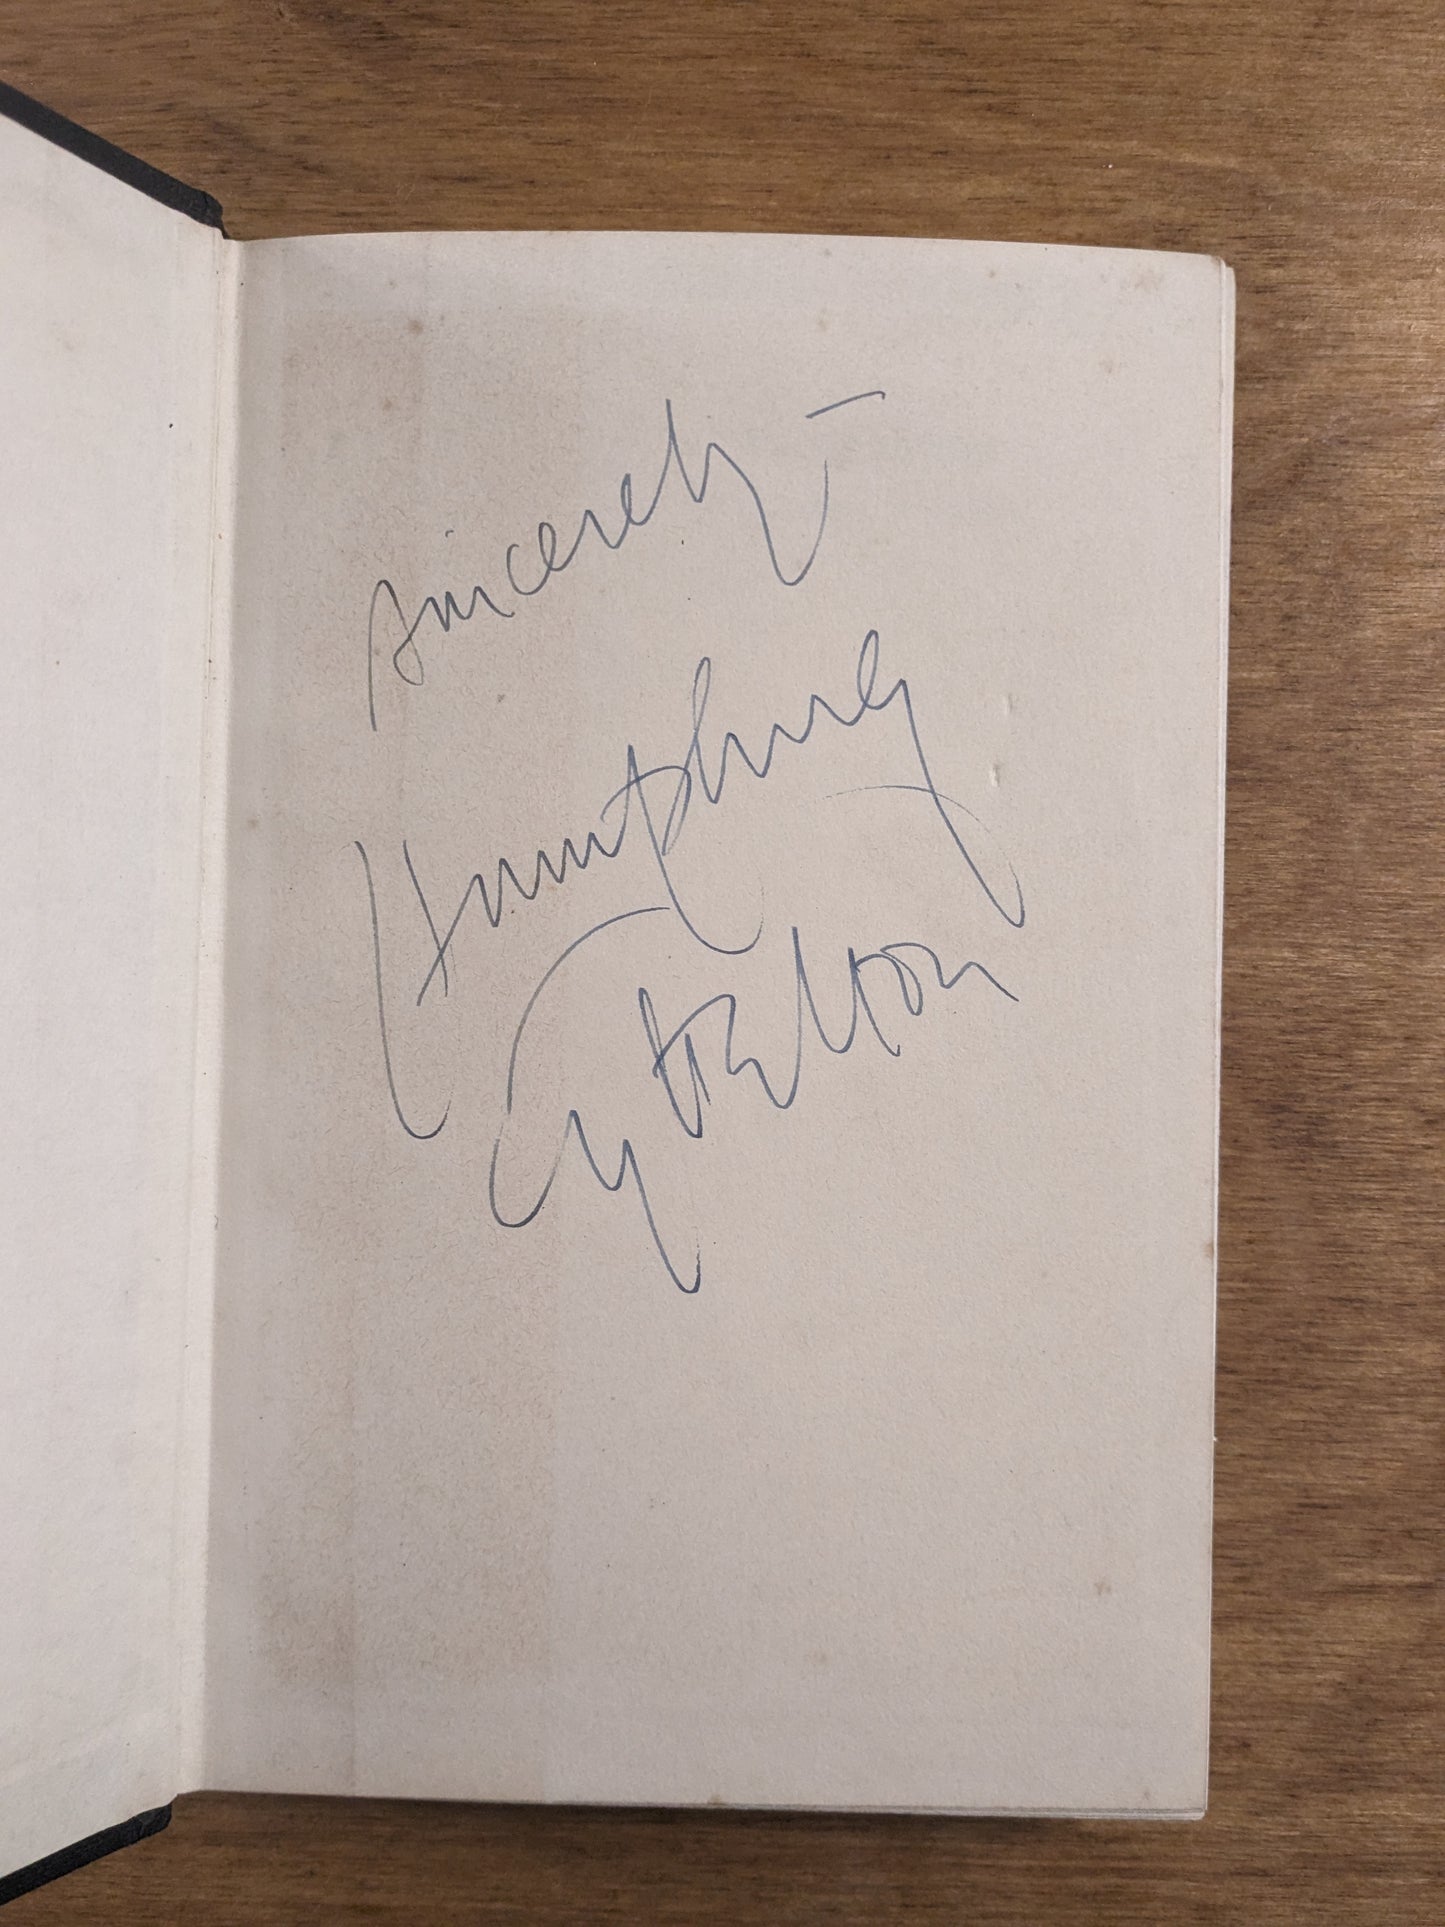 Sincerely –
Humphrey
Lyttelton